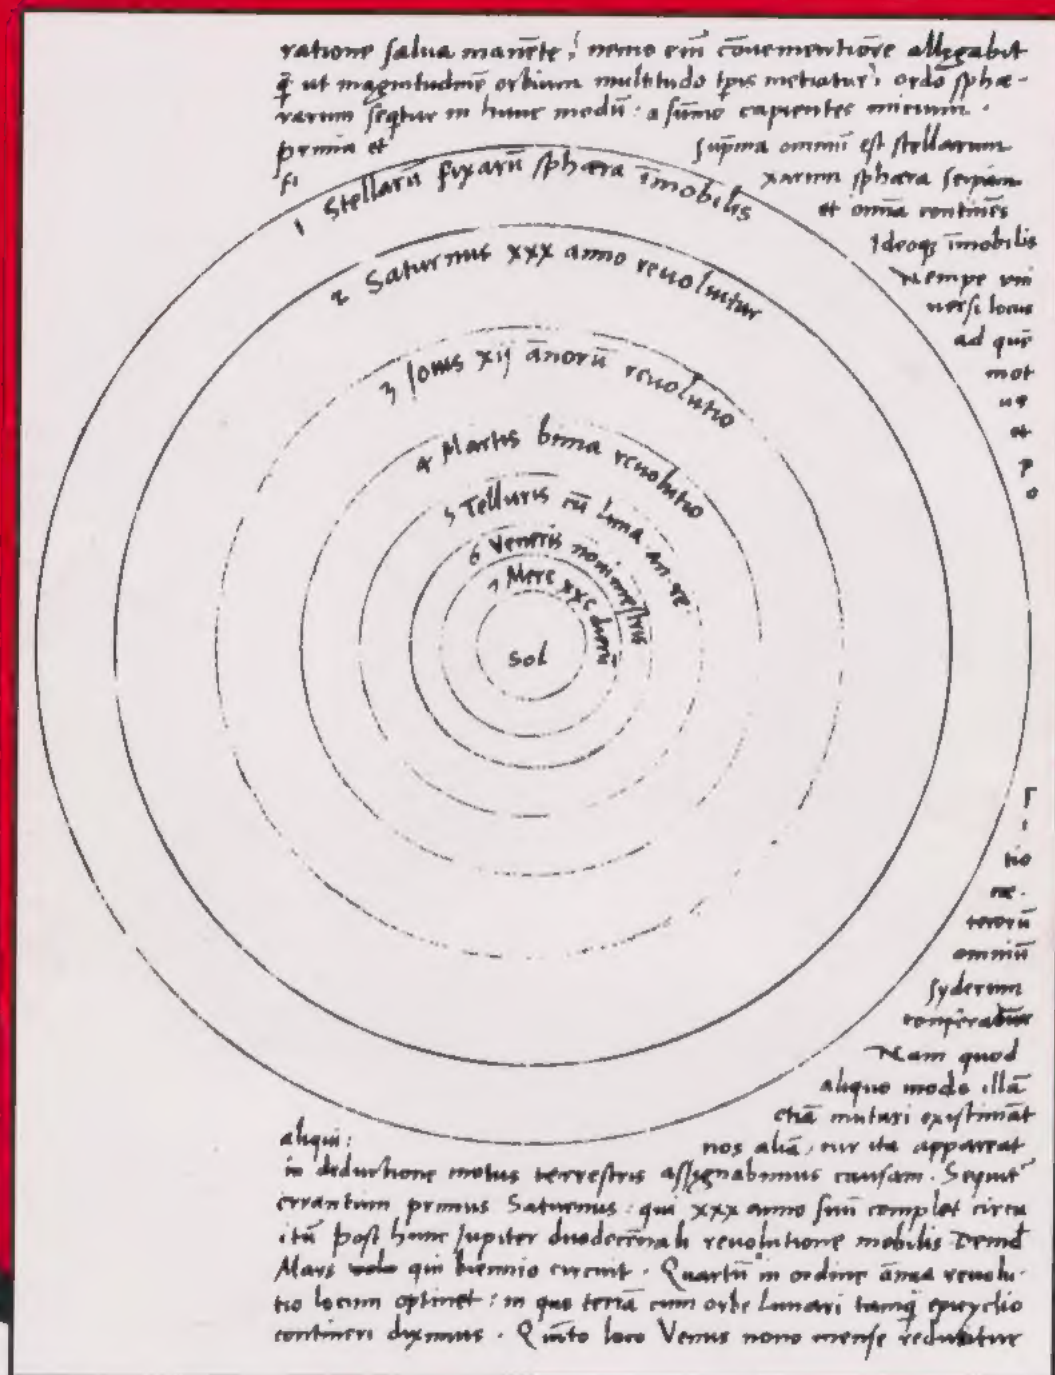 ratione salua manēte; nemo em̄ cōuenientiorē allegabit
q̄ ut magnitudinē orbium multitudo tp̄is metiatur, ordo sphæ-
rarum seqtur in hunc modū: a sūmo capientes initium.
prima et sup̄ma omniū est stellarum
fi xarum sphæra seipām
et omīa continēs
Ideoqꝫ īmobilis
Nempe vni
uersi locus
ad quē
mot
us
et
p
o
1 Stellarū fixarū sphæra īmobilis
2 Saturnus xxx anno reuoluitur
3 Iouis xij āñorū reuolutio
4 Martis bima reuolutio
5 Telluris cū Luna an. re.
6 Veneris nonimestris
7 Merc xxc dierū
Sol
ſ
i
tio
cæ-
terorū
omniū
syderum
conferatur
Nam quod
aliquo modo illā
etiā mutari existimāt
aliqui: nos aliā, cur ita appareat
in deductione motus terrestris assignabimus causam. Sequit̄
errantium primus Saturnus: qui xxx anno suū complet circu
itū post hunc Jupiter duodecēnali reuolutione mobilis Deind̄
Mars qui biennio circuit. Quartū in ordine annua reuolu-
tio locum optinet: in quo terrā cum orbe Lunari tamq̄ epicyclio
contineri diximus. Quīto loco Venus nono mense reducitur